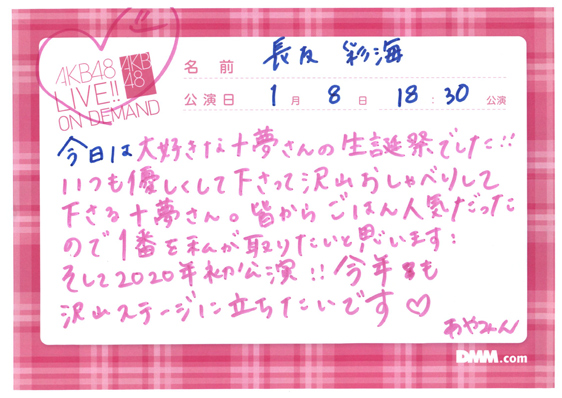 AKB48
LIVE!!
ON DEMAND
AKB
48
名 前 長友 彩海
公演日 1月 8日 18:30 公演
今日は大好きな十夢さんの生誕祭でした!!
いつも優しくして下さって沢山おしゃべりして
下さる十夢さん。皆からごはん人気だった
ので1番を私が取りたいと思います!
そして2020年初公演!! 今年も
沢山ステージに立ちたいです♡
DMM.com